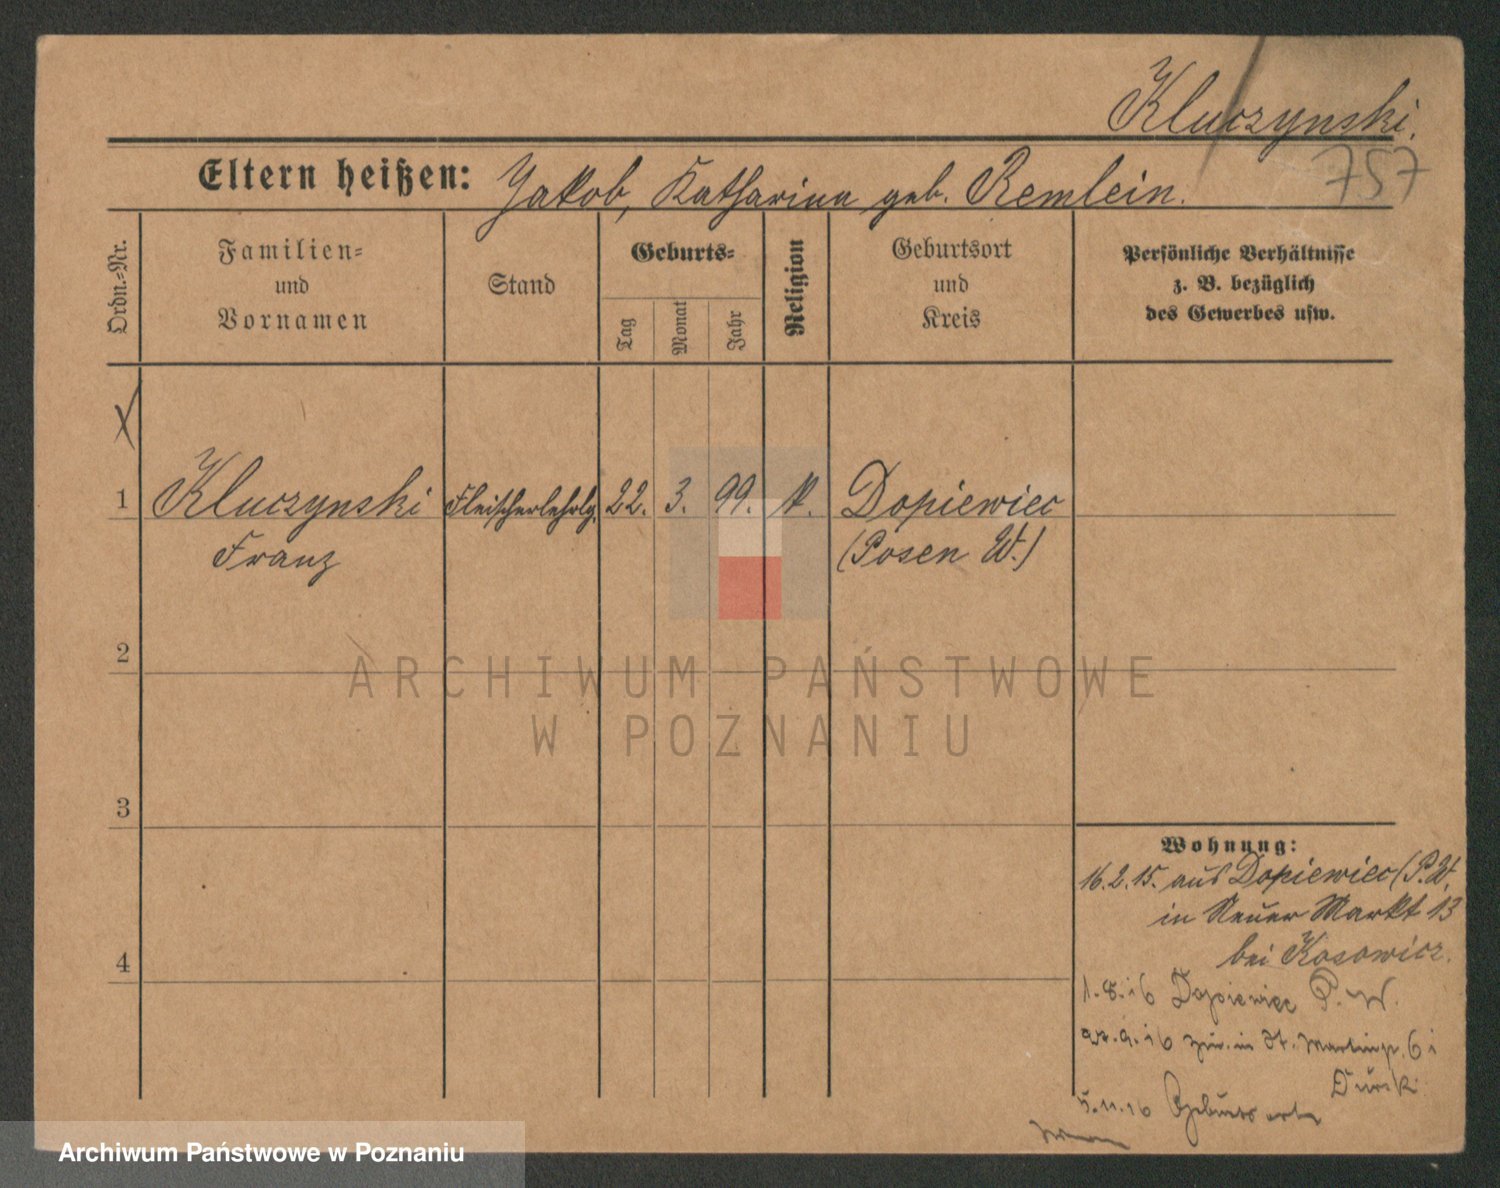 Kluczynski.
757
Eltern heißen: Jakob, Katharina geb. Remlein.
Ordn.=Nr.
Familien=
und
Vornamen
Stand
Geburts=
Tag
Monat
Jahr
Religion
Geburtsort
und
Kreis
Persönliche Verhältnisse
z. B. bezüglich
des Gewerbes usw.
1 Kluczynski Fleischerlehrlg. 22. 3. 99. k. Dopiewiec
Franz (Posen W.)
2
3
4
Wohnung:
16.2.15. aus Dopiewiec (P.W.
in Neuer Markt 13
bei Kosowicz.
1.8.16 Dopiewiec P. W.
9.16 zur. in St. Martinstr. 6 i
Durski
5.11.16 Geburtsorte
ARCHIWUM PAŃSTWOWE
W POZNANIU
Archiwum Państwowe w Poznaniu